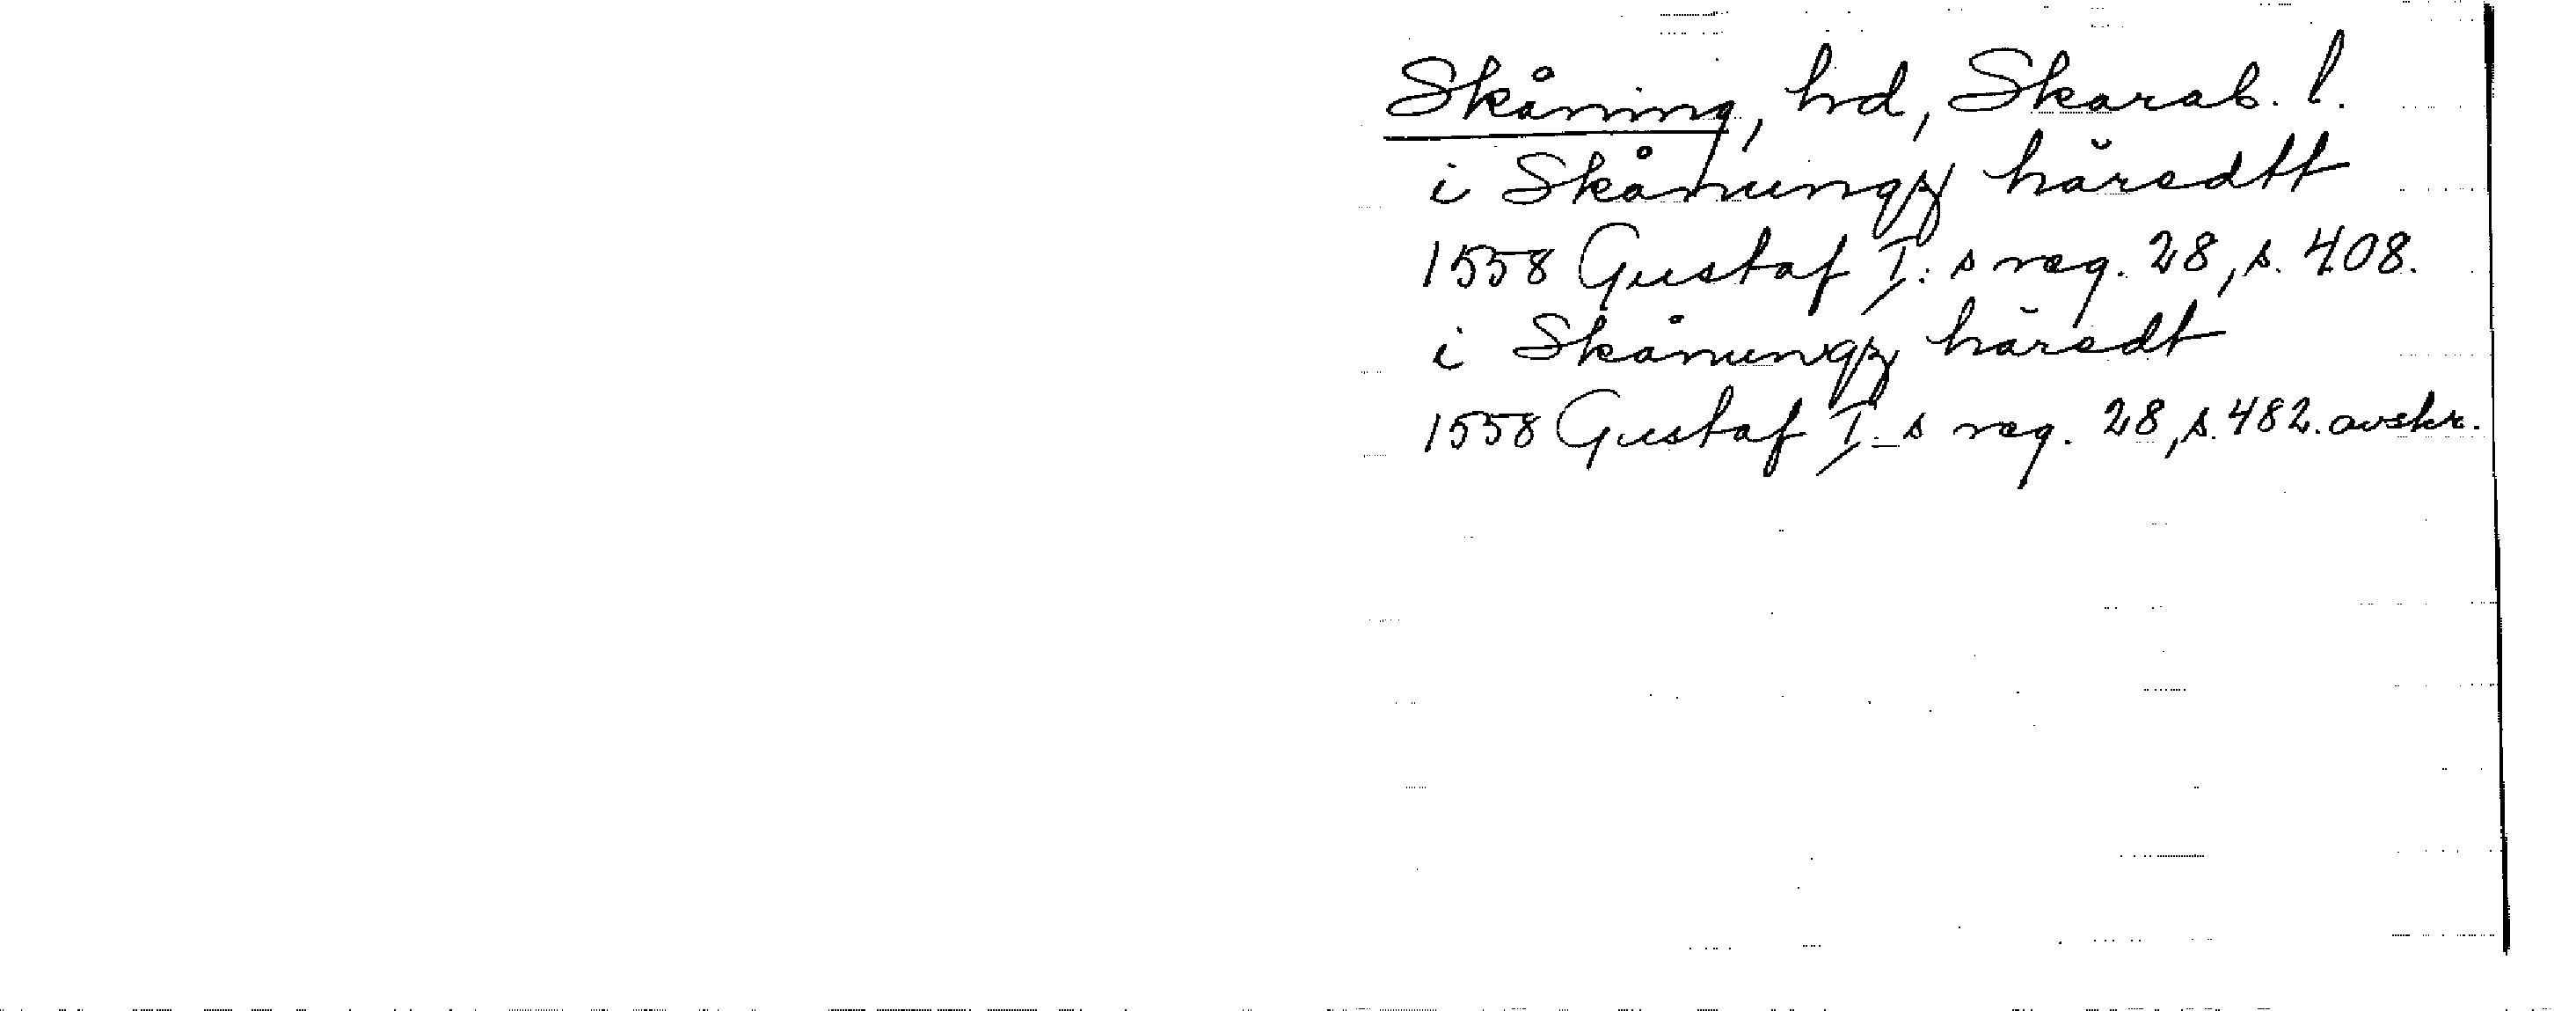 Skåning, hd, Skarab. l.
i Skånungz häredtt
1558 Gustaf I:s reg. 28, s. 408.
i Skånungz häredt
1558 Gustaf I_s reg. 28, s. 482. avskr.